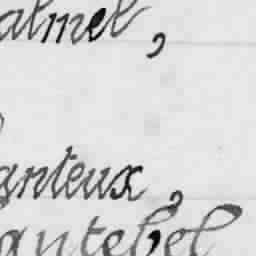 almel,
anteux,
antebel